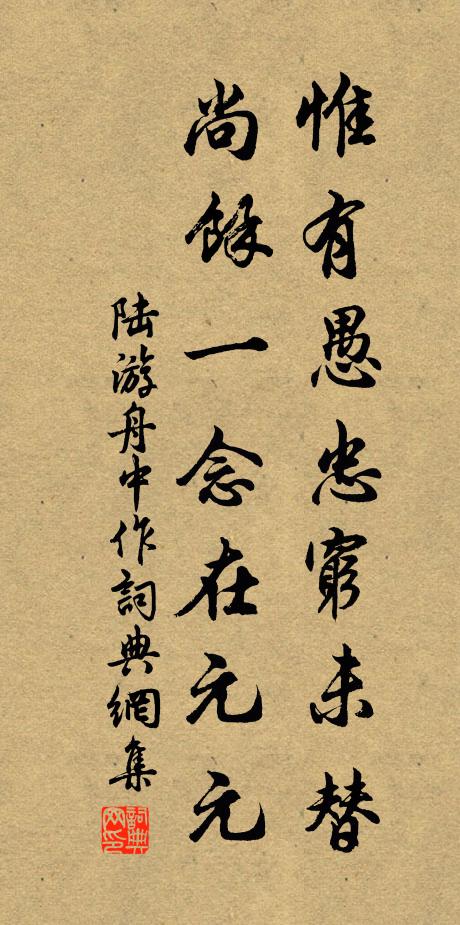 惟有愚忠窮未替
尚餘一念在元元
陸游舟中作詞典網集
詞典網印